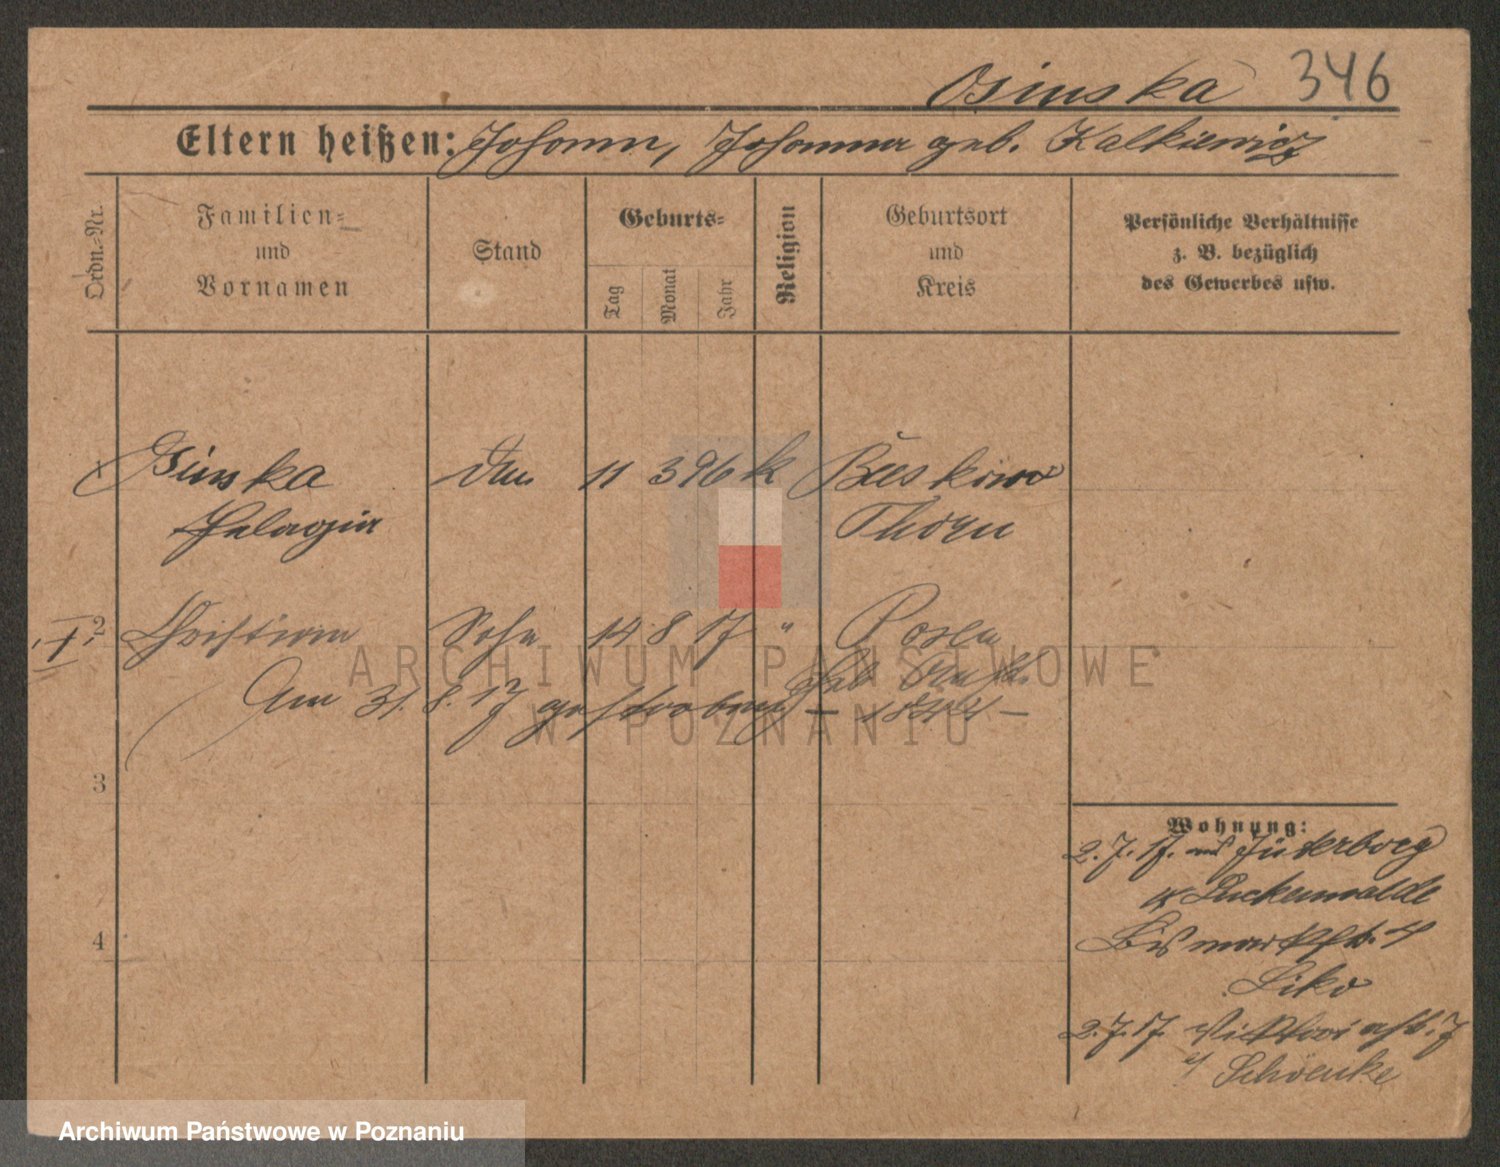 Osinska 346
Eltern heißen: Johann, Johanna geb. Kalkiewicz
Ordn.-Nr.
Familien-
und
Vornamen
Stand
Geburts-
Tag
Monat
Jahr
Religion
Geburtsort
und
Kreis
Persönliche Verhältnisse
z. B. bezüglich
des Gewerbes usw.
1 Osinska 11 3 96 k
Pelagia Thorn
2 Christian Sohn 14 8 17 " Posen
Am 31. 8. 17 gestorben
3
4
Wohnung:
2. 7. 17. Jüterborg
Luckenwalde
Bismarckstr. 4
2. 7. 17. Viktoriastr. 7
Schönke
ARCHIWUM PAŃSTWOWE
W POZNANIU
Archiwum Państwowe w Poznaniu